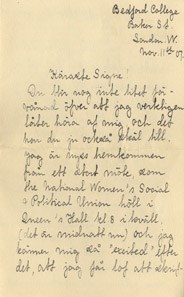 Bedford College
Baker St.
London W.
Nov. 11th 07.
Käraste Signe!
Du blir nog inte litet för-
vånad öfver att jag verkligen
låter höra af mig och det
har du ju också skäl till.
Jag är nyss hemkommen
från ett stort möte, som
the National Women's Social
& Political Union höll i
Queen's Hall kl. 8 i kväll.
(det är midnatt nu) och jag
känner mig så "excited" efter
det, att jag får lof att skrif-